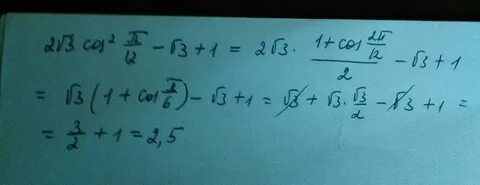 2√3 cos² π/12 - √3 + 1 = 2√3 · (1 + cos 2π/12)/2 - √3 + 1
= √3 (1 + cos π/6) - √3 + 1 = √3 + √3 · √3/2 - √3 + 1 =
= 3/2 + 1 = 2,5